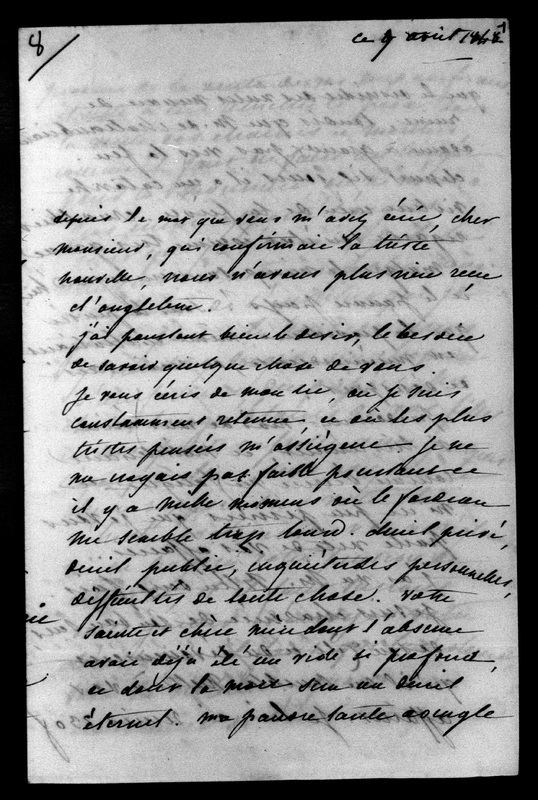 8
ce 9 avril 1848
depuis le mot que vous m'avez écrit, cher
monsieur, qui confirmait la triste
nouvelle, nous n'avons plus rien reçu
d'angleterre.
j'ai pourtant bien le désir, le besoin
de savoir quelque chose de vous.
je vous écris de mon lit, où je suis
constamment retenue, et où les plus
tristes pensées m'assiègent. je ne
me croyais pas faible pourtant et
il y a mille momens où le fardeau
me semble trop lourd. deuil privé,
deuil public, inquiétudes personnelles,
difficultés de toute chose. votre
sainte et chère mère dont l'absence
avait déjà été un vide si profond,
et dont la mort sera un deuil
éternel. ma pauvre tante aveugle